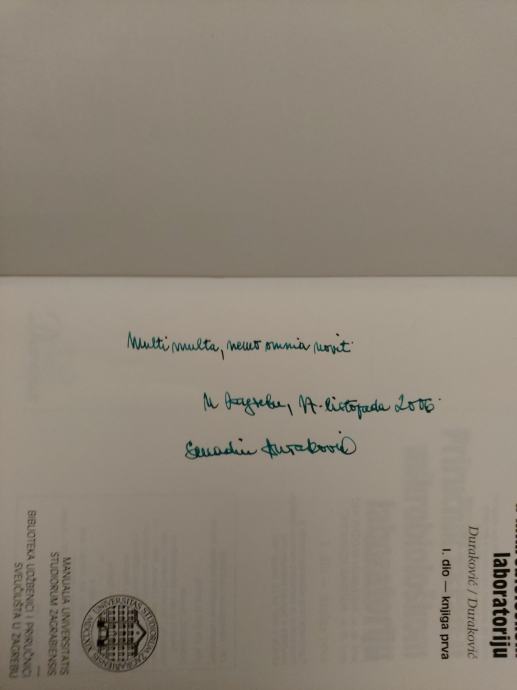 Multi multa, nemo omnia novit
U Zagrebu, 17. listopada 2006.
Senadin Duraković
laboratoriju
Duraković / Duraković
I. dio — knjiga prva
MANUALIA UNIVERSITATIS
STUDIORUM ZAGRABIENSIS
—
BIBLIOTEKA UDŽBENICI I PRIRUČNICI
SVEUČILIŠTA U ZAGREBU
UNIVERSITAS STUDIORUM ZAGRABIENSIS